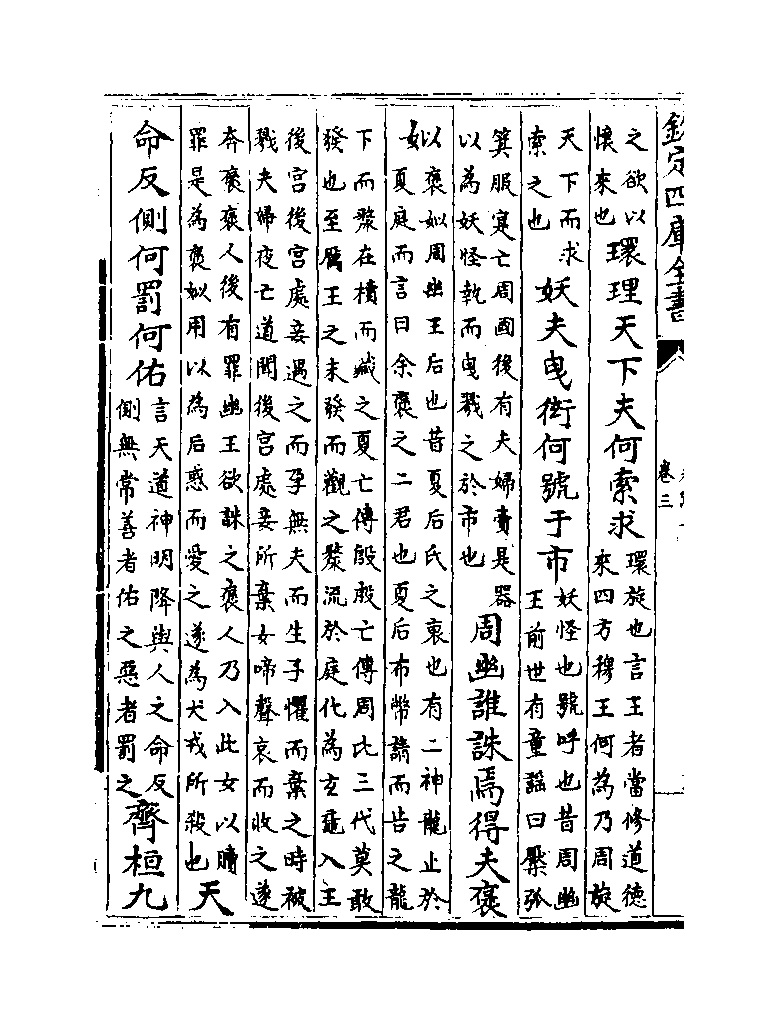 欽定四庫全書
卷三
之欲以
懷來也
環理天下夫何索求
環旋也言王者當修道德
來四方穆王何為乃周旋
天下而求
索之也
妖夫曳衒何號于市
妖怪也號呼也昔周幽
王前世有童謡曰檿弧
箕服寔亡周國後有夫婦賣是器
以為妖怪執而曳戮之於市也
周幽誰誅焉得夫褒
姒
褒姒周幽王后也昔夏后氏之衰也有二神龍止於
夏庭而言曰余褒之二君也夏后布幣謠而告之龍
下而漦在櫝而藏之夏亡傳殷殷亡傳周比三代莫敢
發也至厲王之末發而觀之漦流於庭化為玄黿入王
後宮後宮處妾遇之而孕無夫而生子懼而棄之時被
戮夫婦夜亡道聞後宮處妾所棄女啼聲哀而收之遂
奔褒褒人後有罪幽王欲誅之褒人乃入此女以贖
罪是為褒姒用以為后惑而愛之遂為犬戎所殺也
天
命反側何罰何佑
言天道神明降與人之命反
側無常善者佑之惡者罰之
齊桓九